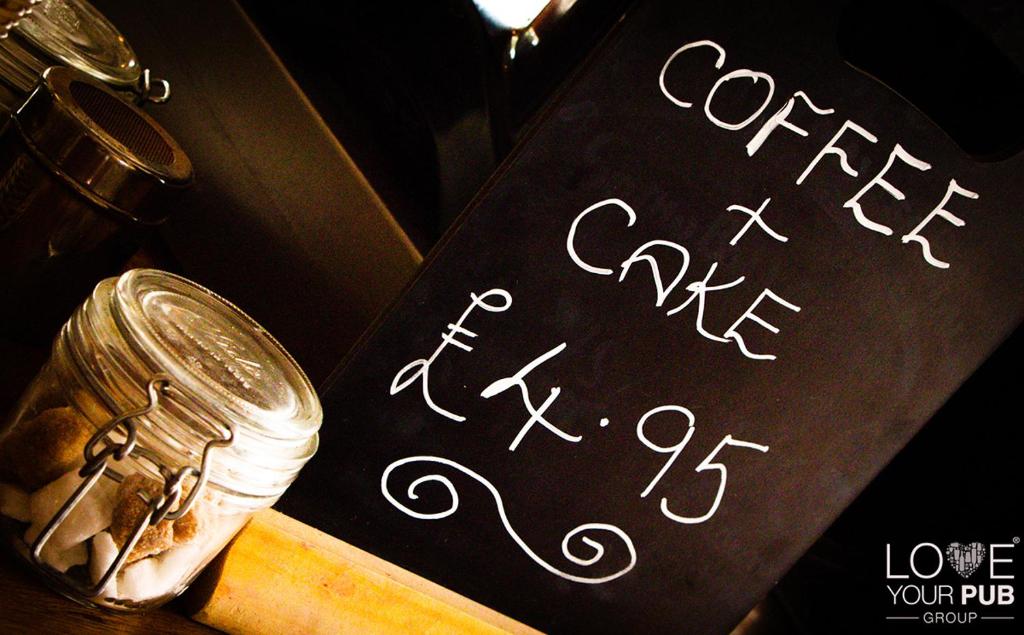 COFFEE
+
CAKE
£4.95
LOVE®
YOUR PUB
GROUP